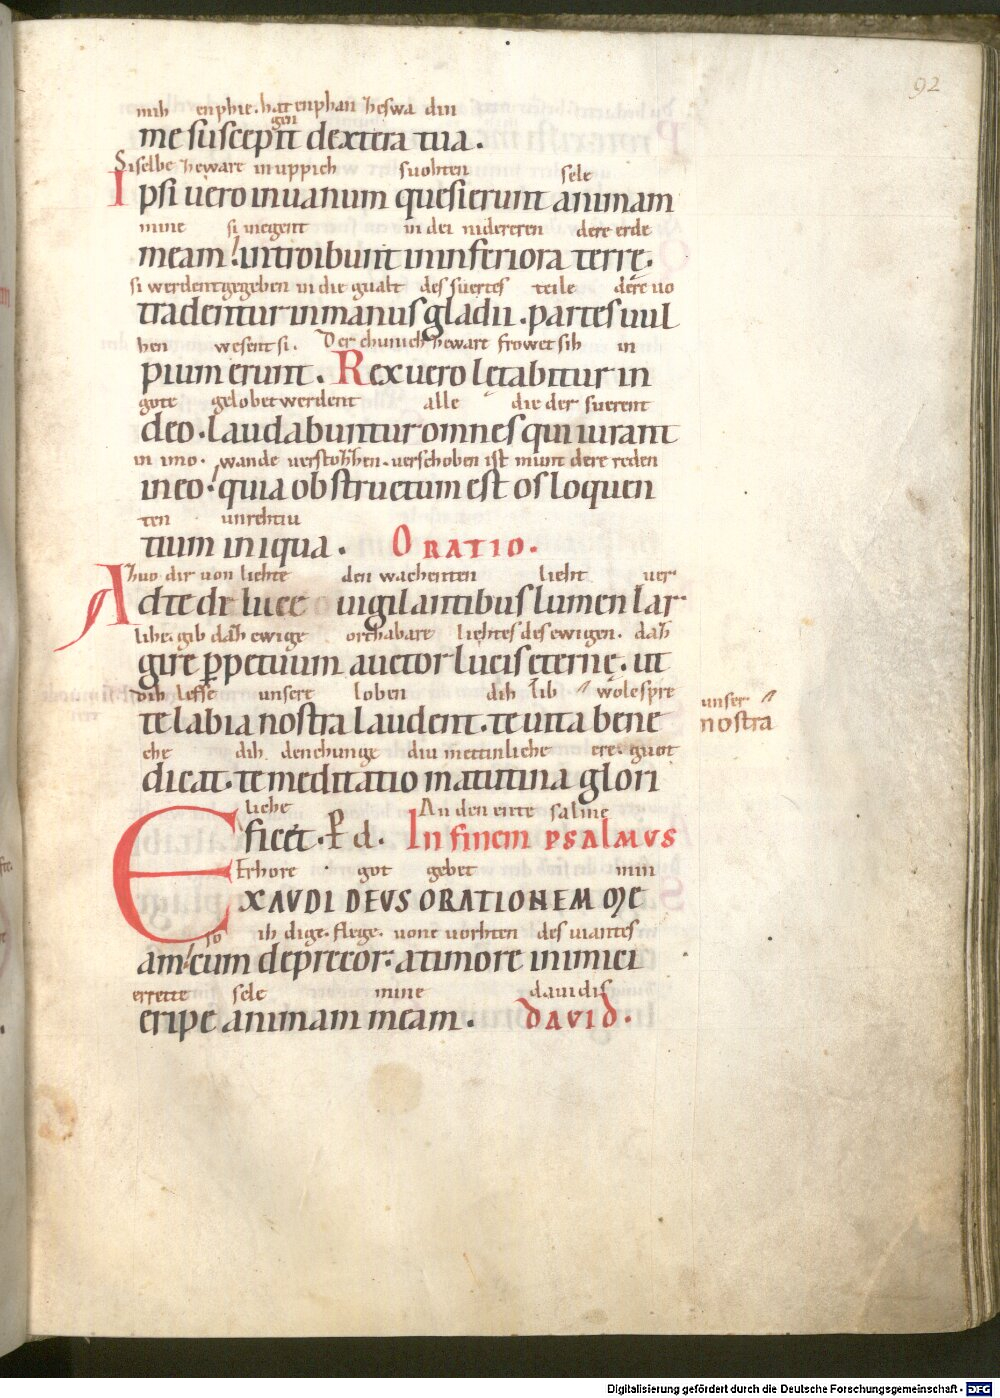 92
mih enphie. hat enphan zeswa din
gen
me suscepit dextera tua.
Si selbe zeware in uppich suohten sele
Ipsi uero inuanum quesierunt animam
mine si inegent in dei nidereren dere erde
meam! introibunt in inferiora terrę.
si werdent gegeben in die gualt des suertes teile dere uo
tradentur in manus gladii. partes uul
hen wesent si. Der chunich zeware frowet sih in
pium erunt. Rex uero lętabitur in
gote gelobet werdent alle die der suerent
deo. laudabuntur omnes qui iurant
in imo. wande verschoben ist munt dere reden
in eo! quia obstructum est os loquen
ten unrehtiu
tium iniqua. ORATIO.
Zuo dir von liehte den wachenten lieht ver
Ad te de luce uigilantibus lumen lar
lihe. gib daz ewige orthabare liehtes des ewigen. daz
gire ꝑpetuum auctor lucis eternę. ut
dih leffse unsere loben dih lib wole spre
te labia nostra laudent. te uita bene
unser
nostra
che dih den chunige diu mettinliche ere. guot
dicat. te meditatio matutina glori
liche An den ente salme
ficet. P d. In finem PSALMVS
Erhore got gebet min
EXAUDI DEUS ORATIONEM ME
so ih dige. flege. uone vorhten des viantes
am! cum deprecor. a timore inimici
errette sele mine dauidis
eripe animam meam. DAVID.
Digitalisierung gefördert durch die Deutsche Forschungsgemeinschaft - DFG